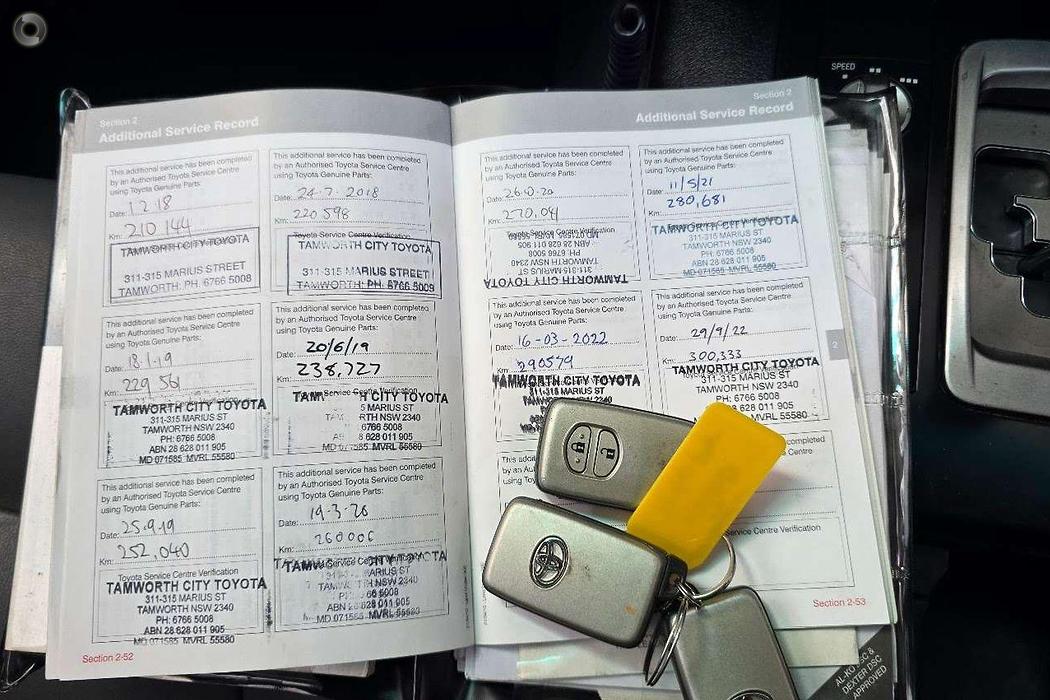 Section 2
Additional Service Record
This additional service has been completed
by an Authorised Toyota Service Centre
using Toyota Genuine Parts:
Date: 1 2 18
Km: 210 144
TAMWORTH CITY TOYOTA
311-315 MARIUS STREET
TAMWORTH: PH: 6766 5008
This additional service has been completed
by an Authorised Toyota Service Centre
using Toyota Genuine Parts:
Date: 24-7-2018
Km: 220 598
TAMWORTH CITY TOYOTA
311-315 MARIUS STREET
TAMWORTH: PH: 6766 5009
This additional service has been completed
by an Authorised Toyota Service Centre
using Toyota Genuine Parts:
Date: 18-1-19
Km: 229 561
TAMWORTH CITY TOYOTA
311-315 MARIUS ST
TAMWORTH NSW 2340
PH: 6766 5008
ABN 28 628 011 905
MD 071585 MVRL 55580
This additional service has been completed
by an Authorised Toyota Service Centre
using Toyota Genuine Parts:
Date: 20/6/19
Km: 238,727
Toyota Service Centre Verification
CITY TOYOTA
5 MARIUS ST
NSW 2340
6766 5008
8 628 011 905
MD 071585 MVRL 55580
This additional service has been completed
by an Authorised Toyota Service Centre
using Toyota Genuine Parts:
Date: 25.9.19
Km: 252,040
Toyota Service Centre Verification
TAMWORTH CITY TOYOTA
311-315 MARIUS ST
TAMWORTH NSW 2340
PH: 6766 5008
ABN 28 628 011 905
MD 071585 MVRL 55580
This additional service has been completed
by an Authorised Toyota Service Centre
using Toyota Genuine Parts:
Date: 19-3-20
Km: 260006
CITY TOYOTA
MARIUS ST
NSW 2340
6766 5008
ABN 28 628 011 905
MD 071585 MVRL 55580
Section 2-52
Section 2
Additional Service Record
This additional service has been completed
by an Authorised Toyota Service Centre
using Toyota Genuine Parts:
Date:
Km: 270,041
Toyota Service Centre Verification
ABN 28 628 011 905
PH: 6766 5008
TAMWORTH NSW 2340
311-315 MARIUS ST
TAMWORTH CITY TOYOTA
This additional service has been completed
by an Authorised Toyota Service Centre
using Toyota Genuine Parts:
Date: 11/5/21
Km: 280,681
TAMWORTH CITY TOYOTA
311-315 MARIUS ST
TAMWORTH NSW 2340
PH: 6766 5008
ABN 28 628 011 905
MD 071585 MVRL 55580
This additional service has been completed
by an Authorised Toyota Service Centre
using Toyota Genuine Parts:
Date: 16-03-2022
Km: 290579
TAMWORTH CITY TOYOTA
311-315 MARIUS ST
TAMWORTH NSW 2340
This additional service has been completed
by an Authorised Toyota Service Centre
using Toyota Genuine Parts:
Date: 29/9/22
Km: 300,333
TAMWORTH CITY TOYOTA
311-315 MARIUS ST
TAMWORTH NSW 2340
PH: 6766 5008
ABN 28 628 011 905
completed
Centre
Service Centre Verification
2
Section 2-53
SPEED
AL-KO ESC &
DEXTER DSC
APPROVED